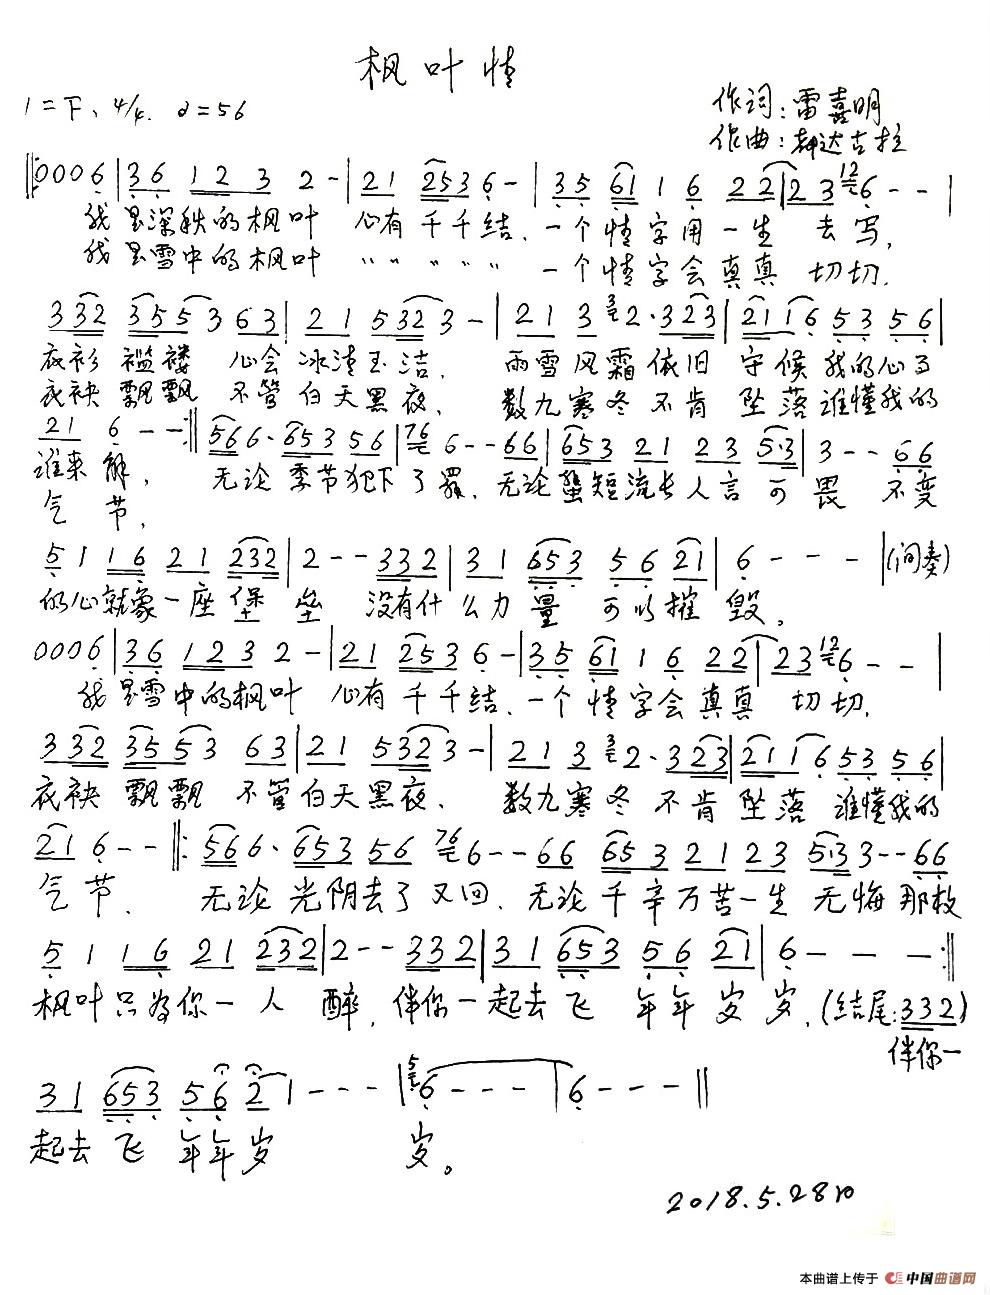 枫叶情
1=F、4/4. ♩=56
作词:雷喜明
作曲:都达古拉
0006|36 123 2-|21 253 6-|35 61 1 6 22|23 12 6--|
我 是深秋的枫叶 心有千千结、一个情字用一生 去写,
我 是雪中的枫叶 〃〃 〃 〃 〃 一个情字会真真 切切.
332 3553 63|21 532 3-|21 3 3 2·323|2116 53 56|
衣衫褴褛 心会冰清玉洁. 雨雪风霜依旧 守候我的心了
衣袂飘飘 不管白天黑夜、 数九寒冬不肯 坠落谁懂我的
21 6--:‖566·653 56|76 6--66|653 21 23 5·3|3--66
谁来解, 无论季节犯下了罪、无论蜚短流长人言可畏 不变
气节,
51 16 21 232|2--332|31 653 56 21|6---|(间奏)
的心就象一座堡垒 没有什么力量 可以摧毁。
0006|36 123 2-|21 253 6-|35 61 1 6 22|23 12 6--|
我 是雪中的枫叶 心有千千结、一个情字会真真 切切.
332 3553 63|21 532 3-|21 3 3 2·323|2116 53 56|
衣袂飘飘 不管白天黑夜、 数九寒冬 不肯坠落 谁懂我的
21 6--‖:566·653 56 76 6--66 653 21 23 5·33--66
气节. 无论光阴去了又回.无论千辛万苦一生无悔那枚
5 1 16 21 232|2--332|31 653 56 21|6---:‖
枫叶只为你一人 醉,伴你一起去飞 年年岁岁.(结尾:332)
伴你一
31 653 56 21---|5 6---|6---‖
起去飞 年年岁 岁。
2018.5.28日
本曲谱上传于 中国曲谱网